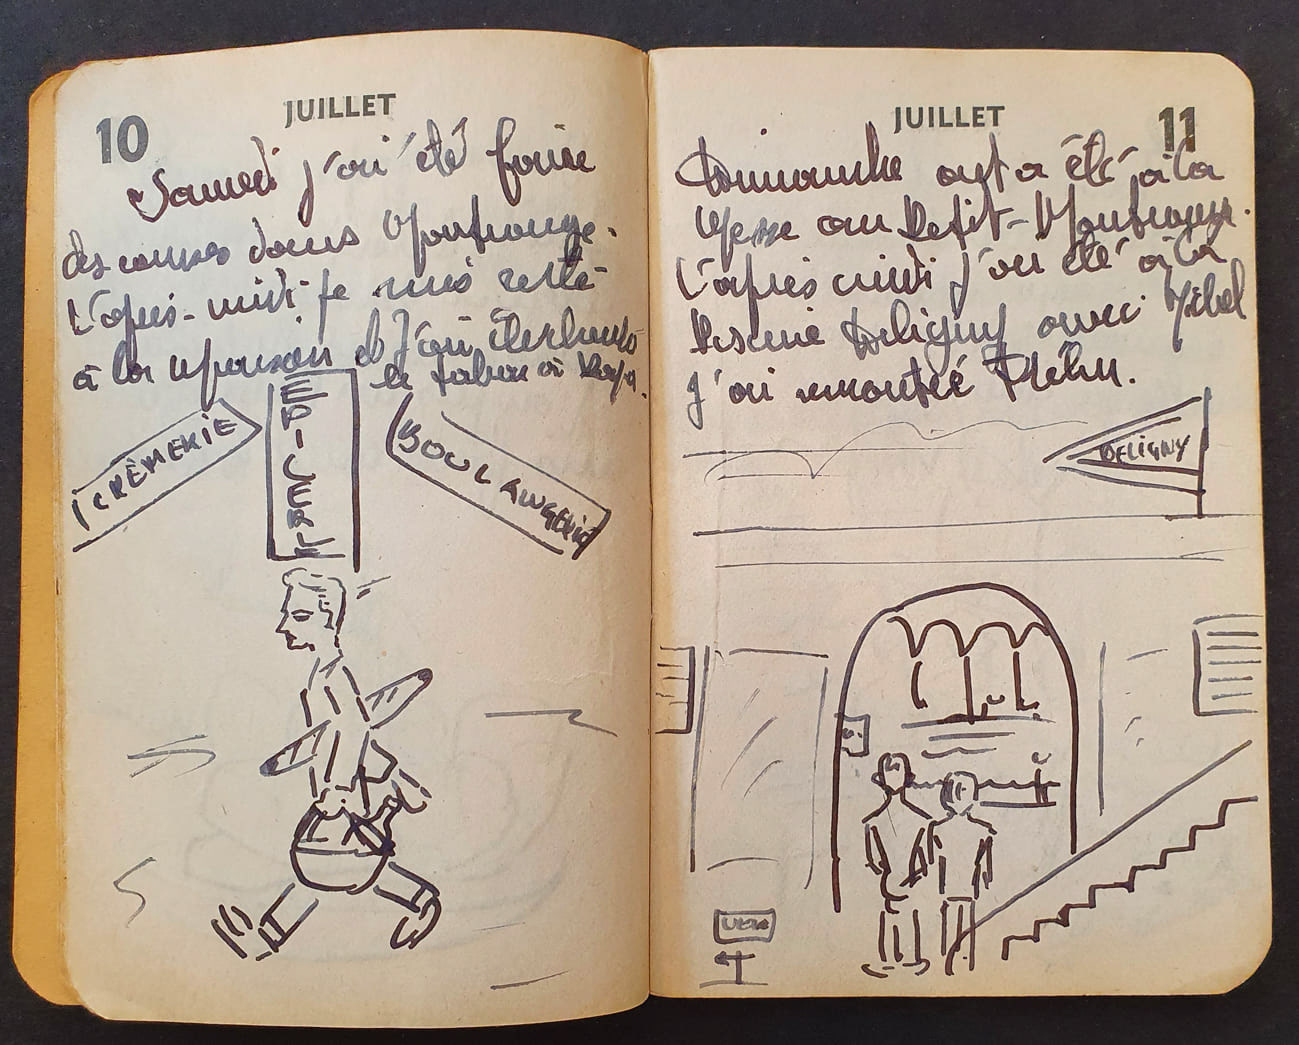 10
JUILLET
Samedi j'ai été faire
des courses dans Montrouge.
L'après-midi je suis resté
à la maison et j'ai
le tabac à
CRÈMERIE
EPICERIE
BOULANGERIE
JUILLET
11
Dimanche ont a été à la
Messe au Petit-Montrouge.
L'après midi j'ai été à la
Piscine Deligny avec Michel
j'ai rencontré
DELIGNY